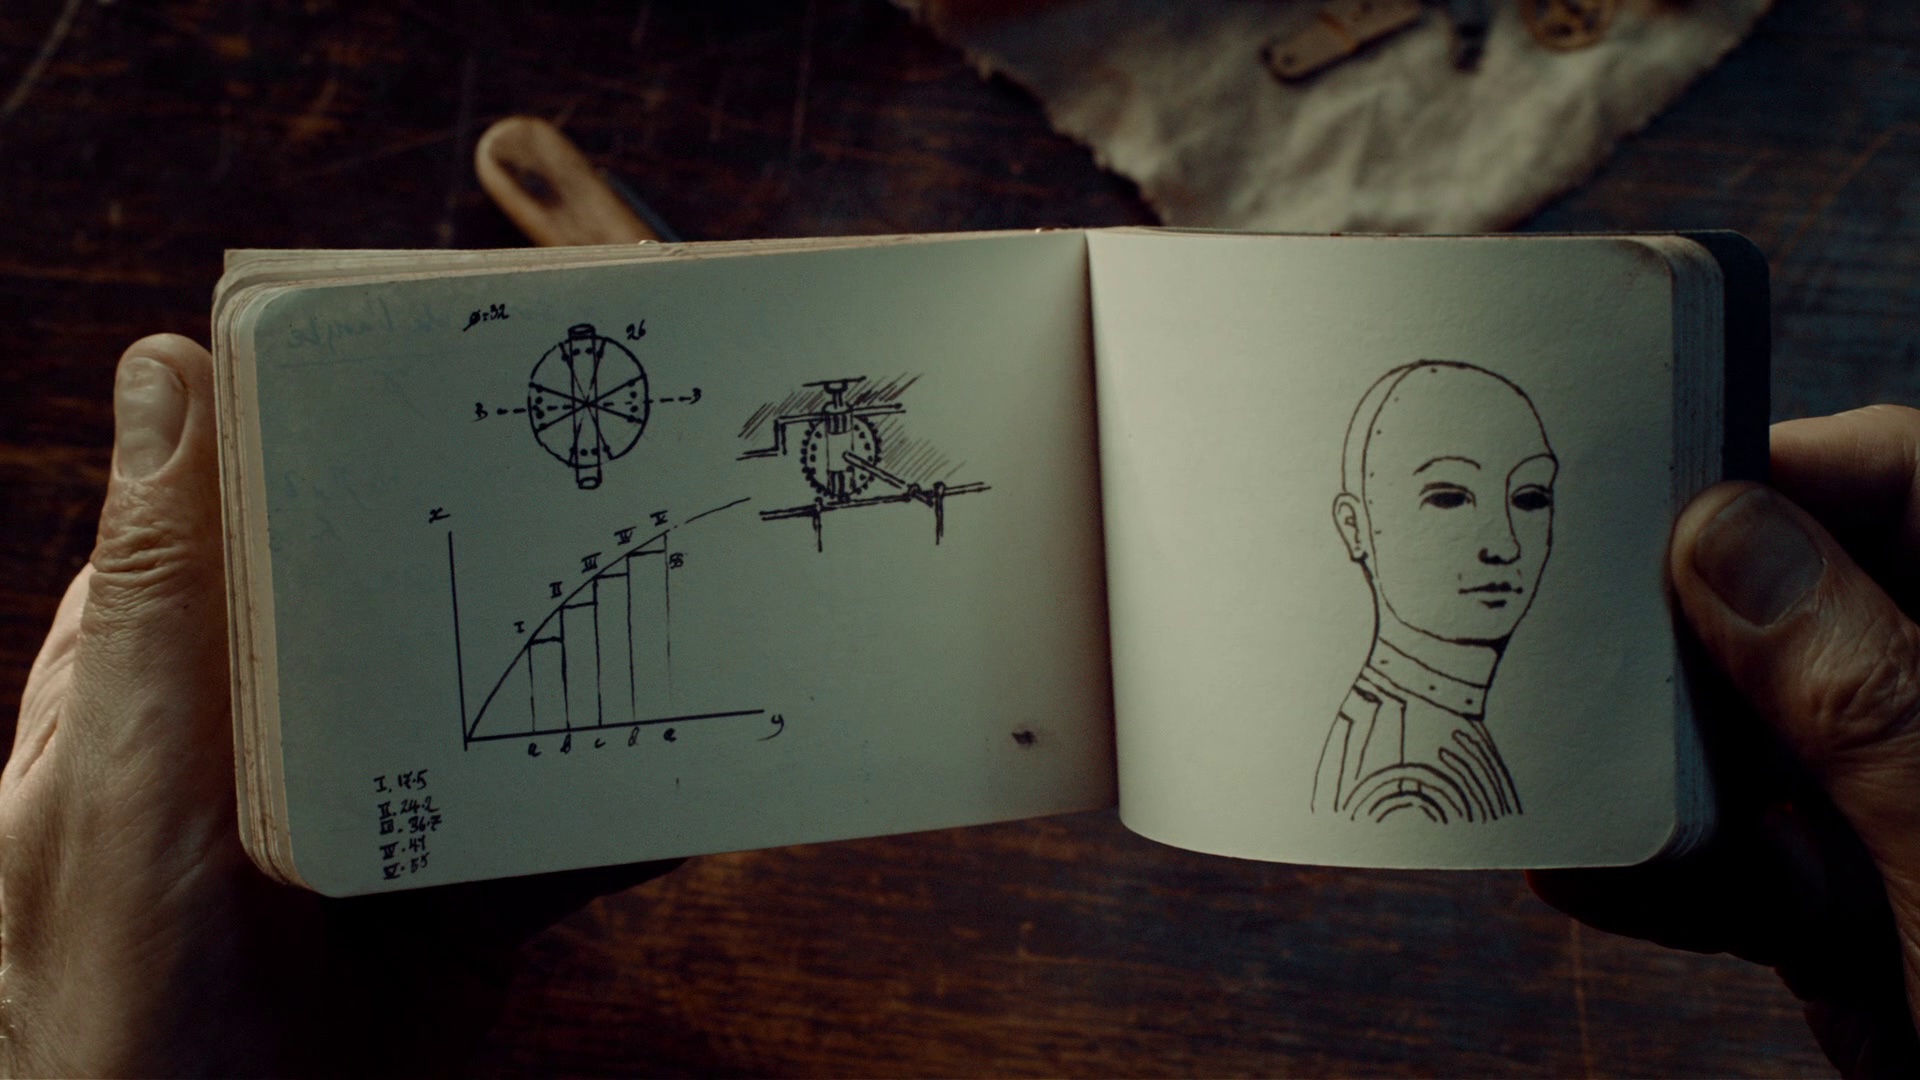 ø=32
26
B B
x
I
II
III
IV
V
55
a b c d e
y
I. 17.5
II. 24.2
III. 36.7
IV. 47
V. 55